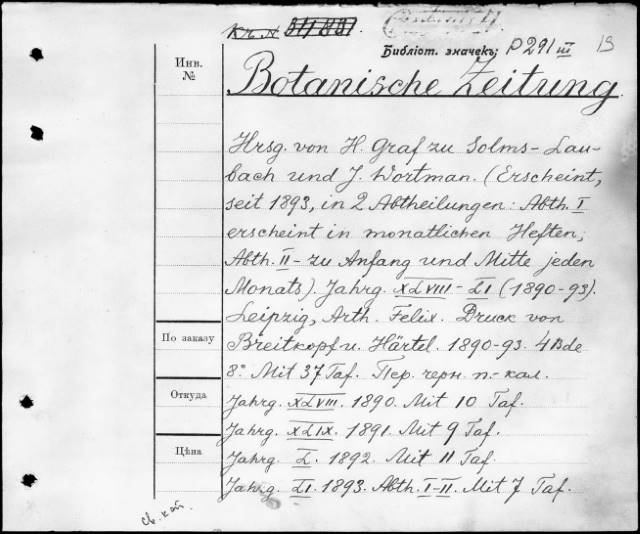 Кт. №
Библіот. значекъ: P 291 III 15
Инв.
№
Botanische Zeitung.
Hrsg. von H. Graf zu Solms-Lau-
bach und J. Wortman. (Erscheint,
seit 1893, in 2 Abtheilungen: Abth. I
erscheint in monatlichen Heften;
Abth. II - zu Anfang und Mitte jeden
Monats). Jahrg. XLVIII-LI (1890-93).
Leipzig, Arth. Felix. Druck von
По заказу
Breitkopf u. Härtel. 1890-93. 4 Bde
8° Mit 37 Taf. Пер. черн. п.-кал.
Откуда
Jahrg. XLVIII. 1890. Mit 10 Taf.
Jahrg. XLIX. 1891. Mit 9 Taf.
Цѣна
Jahrg. L. 1892. Mit 11 Taf.
Jahrg. LI. 1893. Abth. I-II. Mit 7 Taf.
св. кат.